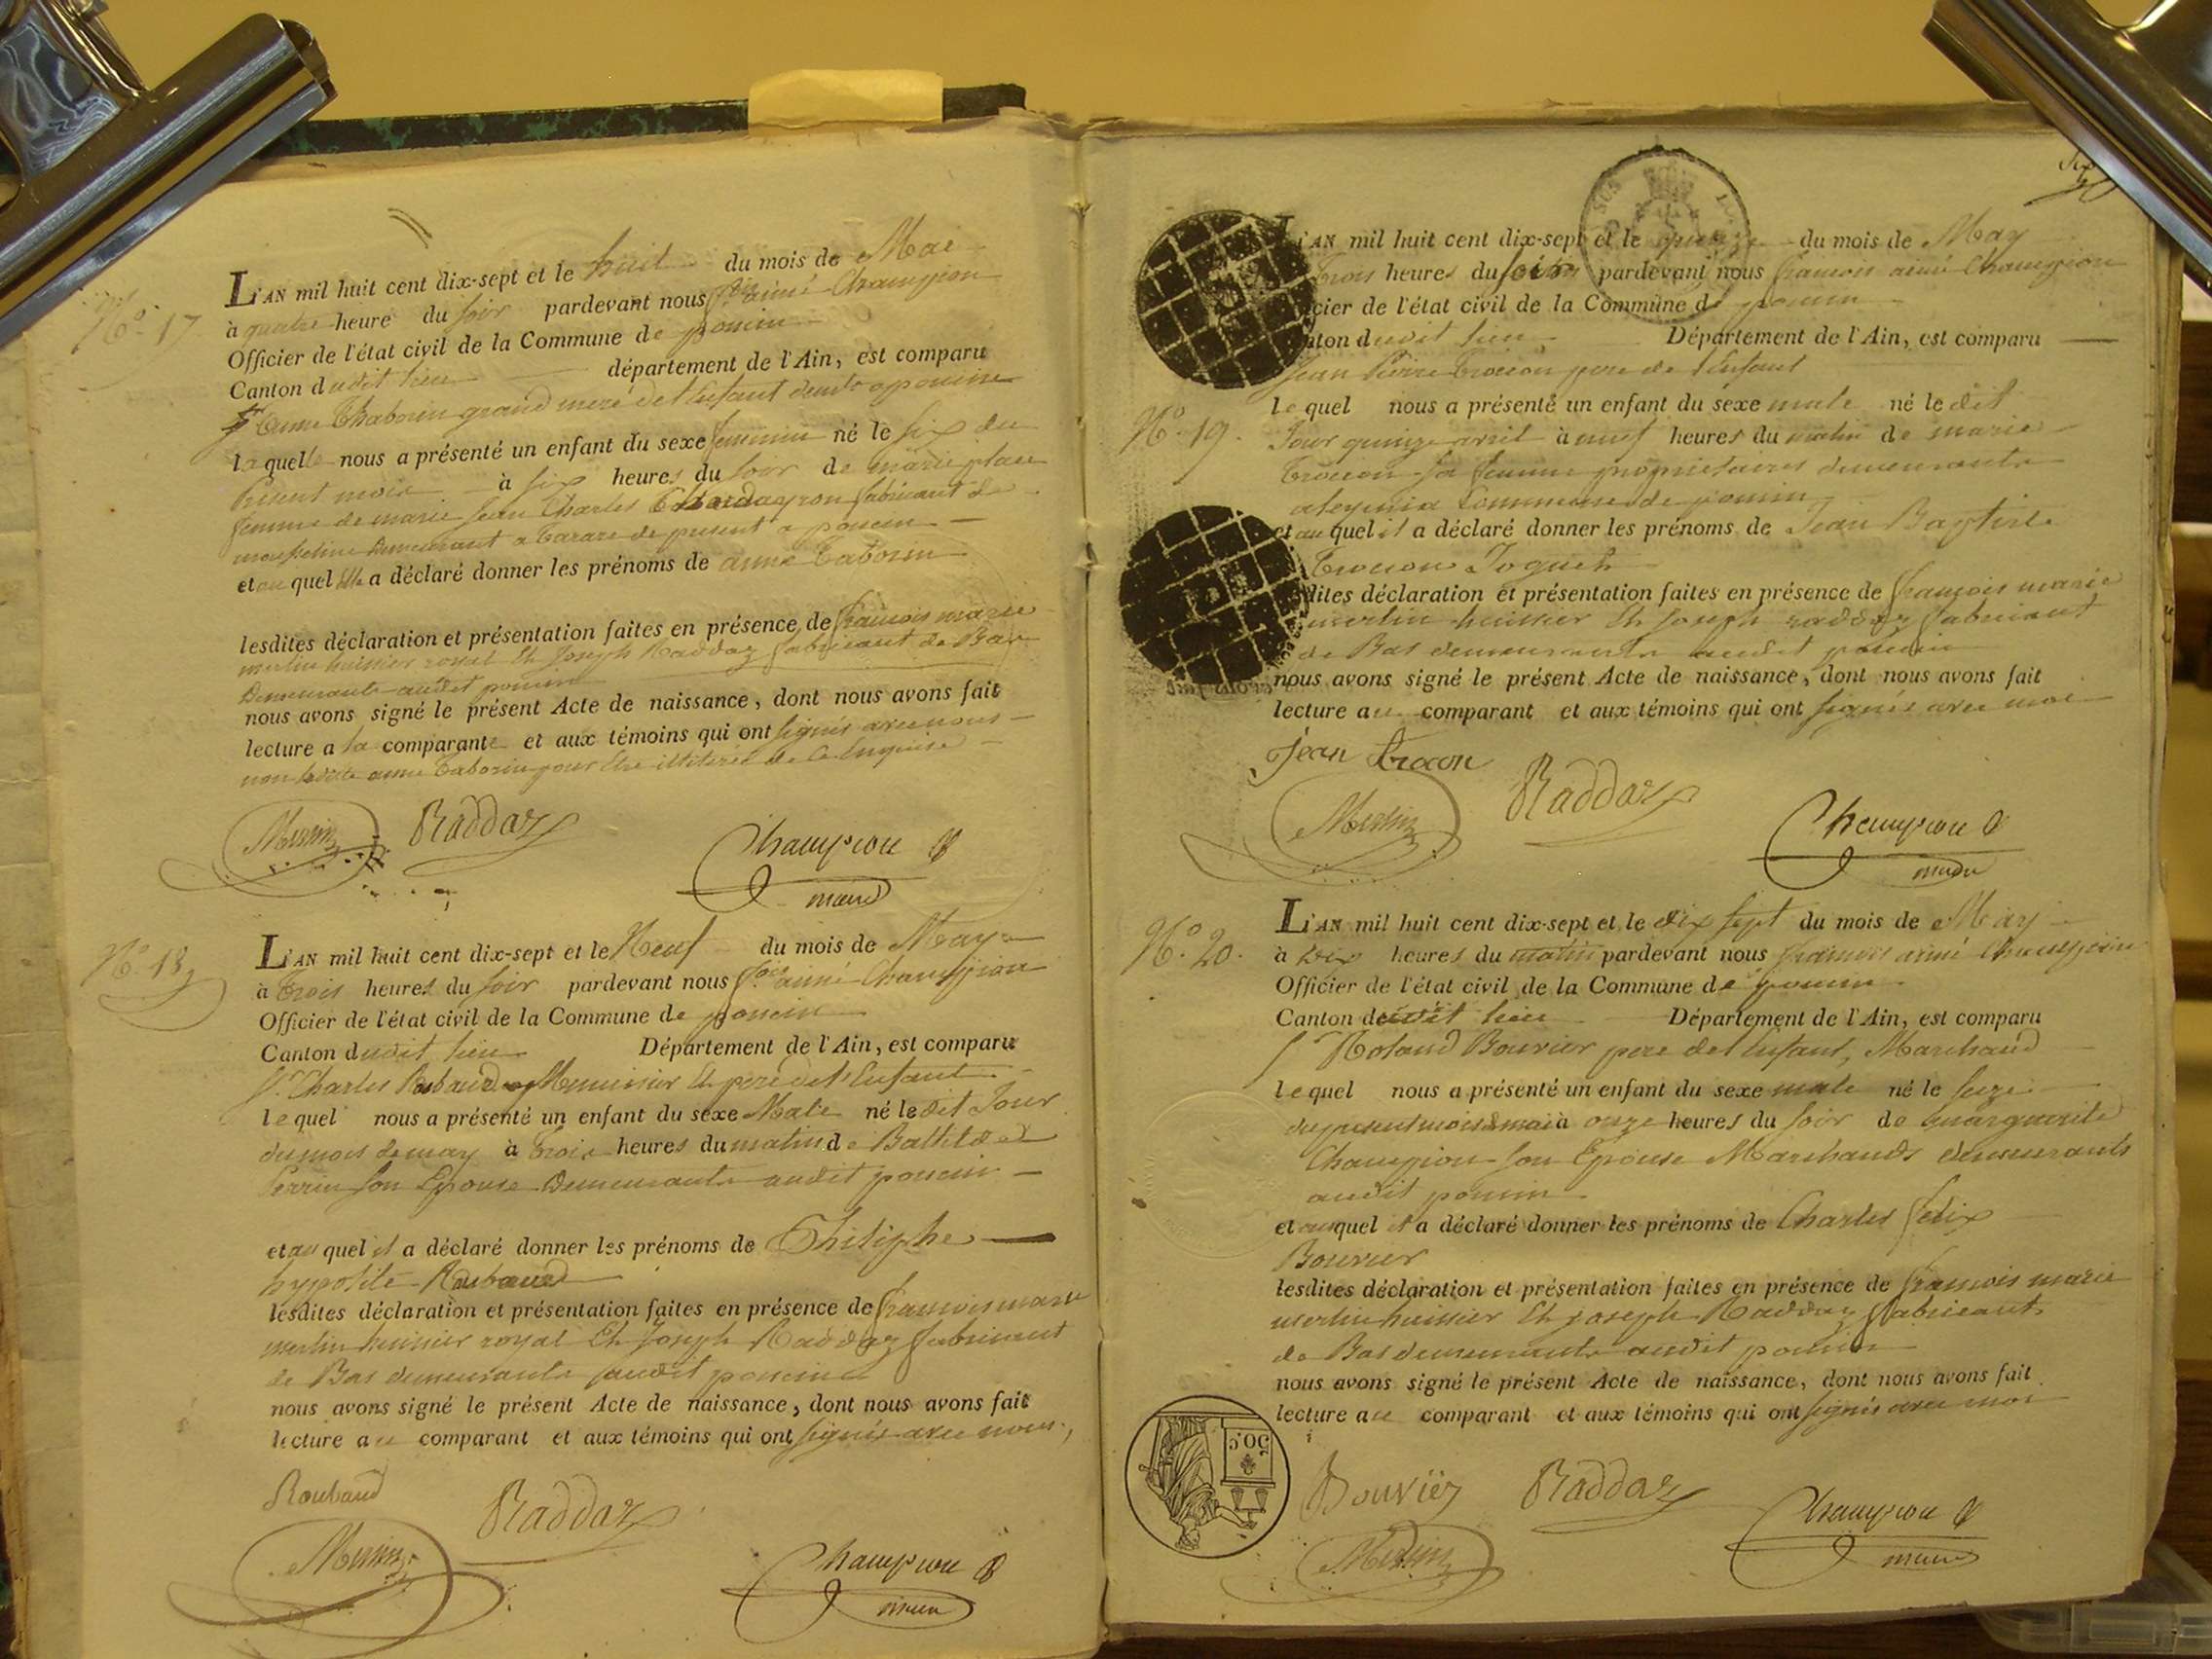 N.° 17
L'AN mil huit cent dix-sept et le huit du mois de Mai
à quatre heure du soir pardevant nous f.ois aimé Champion
Officier de l'état civil de la Commune de poncin
Canton dudit lieu département de l'Ain, est comparu
anne Thaborin grand mere de l'enfant demte a poncin
laquelle nous a présenté un enfant du sexe feminin né le six du
présent mois à six heures du soir de marie place
femme de marie jean Charles fabricant de
mousseline demeurant a tarare de present a poncin
et au quel elle a déclaré donner les prénoms de anne taborin
lesdites déclaration et présentation faites en présence de françois marie
merlin huissier royal Et Joseph Raddaz fabricant de Bas
demeurants audit poncin
nous avons signé le présent Acte de naissance, dont nous avons fait
lecture a la comparante et aux témoins qui ont signés avec nous
non ladite anne taborin pour être illitérée de ce Enquise
Merlin Raddaz Champion
maire
N.° 18
L'AN mil huit cent dix-sept et le Neuf du mois de May
à trois heures du soir pardevant nous f.ois aimé Champion
Officier de l'état civil de la Commune de poncin
Canton dudit lieu Département de l'Ain, est comparu
Sr Charles Roubaud Menuisier Et pere de l'Enfant
lequel nous a présenté un enfant du sexe Male né le dit Jour
du mois de may à trois heures du matin de Battilde
Perrin son Epouse Demeurants audit poncin
et au quel il a déclaré donner les prénoms de Philiphe
hypolite Roubaud
lesdites déclaration et présentation faites en présence de francois marie
merlin huissier royal Et Joseph Raddaz fabricant
de Bas demeurants audit poncin
nous avons signé le présent Acte de naissance, dont nous avons fait
lecture au comparant et aux témoins qui ont signés avec nous,
Roubaud Raddaz
Merlin Champion
maire
L'AN mil huit cent dix-sept et le quinze du mois de May
trois heures du soir pardevant nous francois aimé Champion
cier de l'état civil de la Commune de poncin
nton dudit lieu Département de l'Ain, est comparu
Jean Pierre trocon pere de l'Enfant
lequel nous a présenté un enfant du sexe male né le dit
N.° 19.
Jour quinze avril à neuf heures du matin de marie
trocon sa femme proprietaires demeurants
Commune de poncin
et au quel il a déclaré donner les prénoms de Jean Baptiste
trocon Joguet
dites déclaration et présentation faites en présence de françois marie
merlin huissier Et Joseph raddaz fabricant
de Bas demeurants audit poncin
nous avons signé le présent Acte de naissance, dont nous avons fait
lecture au comparant et aux témoins qui ont signés avec moi
Jean trocon
Merlin Raddaz Champion
maire
N.° 20.
L'AN mil huit cent dix-sept et le dix sept du mois de May
à dix heures du matin pardevant nous francois aimé Champion
Officier de l'état civil de la Commune de poncin
Canton dudit lieu Département de l'Ain, est comparu
Sr Roland Bouvier pere de l'enfant, Marchand
lequel nous a présenté un enfant du sexe male né le seize
du présent mois de mai à onze heures du soir de marguerite
Champion son Epouse Marchands demeurants
audit poncin
et au quel il a déclaré donner les prénoms de Charles felix
Bouvier
lesdites déclaration et présentation faites en présence de francois marie
merlin huissier Et joseph Raddaz fabricant
de Bas demeurants audit poncin
nous avons signé le présent Acte de naissance, dont nous avons fait
lecture au comparant et aux témoins qui ont signés avec moi
50.C
Bouvier Raddaz Champion
Merlin maire